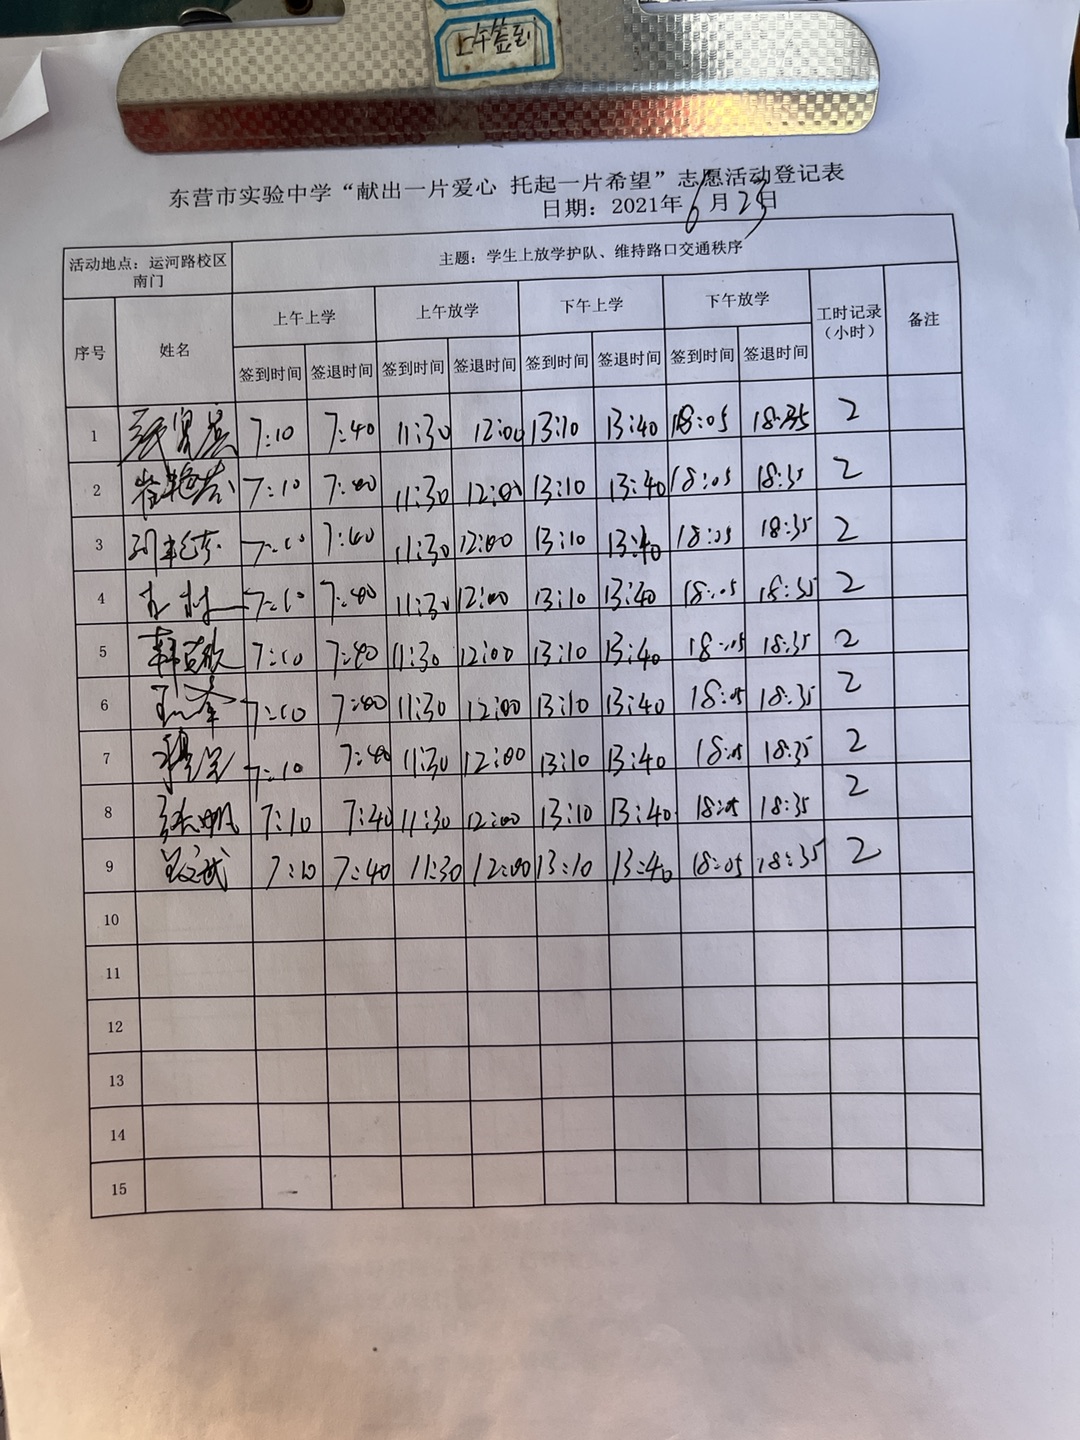 上午签到
东营市实验中学“献出一片爱心 托起一片希望”志愿活动登记表
日期：2021年6月25日
活动地点：运河路校区南门 主题：学生上放学护队、维持路口交通秩序
序号 姓名 上午上学 上午放学 下午上学 下午放学 工时记录（小时） 备注
签到时间 签退时间 签到时间 签退时间 签到时间 签退时间 签到时间 签退时间
1 7:10 7:40 11:30 12:00 13:10 13:40 18:05 18:35 2
2 7:10 7:40 11:30 12:00 13:10 13:40 18:05 18:35 2
3 7:10 7:40 11:30 12:00 13:10 13:40 18:05 18:35 2
4 7:10 7:40 11:30 12:00 13:10 13:40 18:05 18:35 2
5 7:10 7:40 11:30 12:00 13:10 13:40 18:05 18:35 2
6 7:10 7:40 11:30 12:00 13:10 13:40 18:05 18:35 2
7 7:10 7:40 11:30 12:00 13:10 13:40 18:05 18:35 2
8 7:10 7:40 11:30 12:00 13:10 13:40 18:05 18:35 2
9 7:10 7:40 11:30 12:00 13:10 13:40 18:05 18:35 2
10
11
12
13
14
15